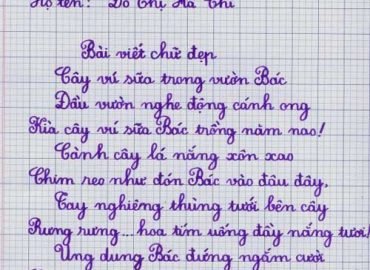 Họ tên: Đỗ Thị Hà Thi
Bài viết chữ đẹp
Cây vú sữa trong vườn Bác
Đầu vườn nghe động cánh ong
Kìa cây ví sữa Bác trồng năm nao!
Cành cây lá nắng xôn xao
Chim reo như đón Bác vào đâu đây,
Tay nghiêng thùng tưới bên cây
Rưng rưng... hoa tím uống đầy nắng tươi!
Ung dung Bác đứng ngắm cười